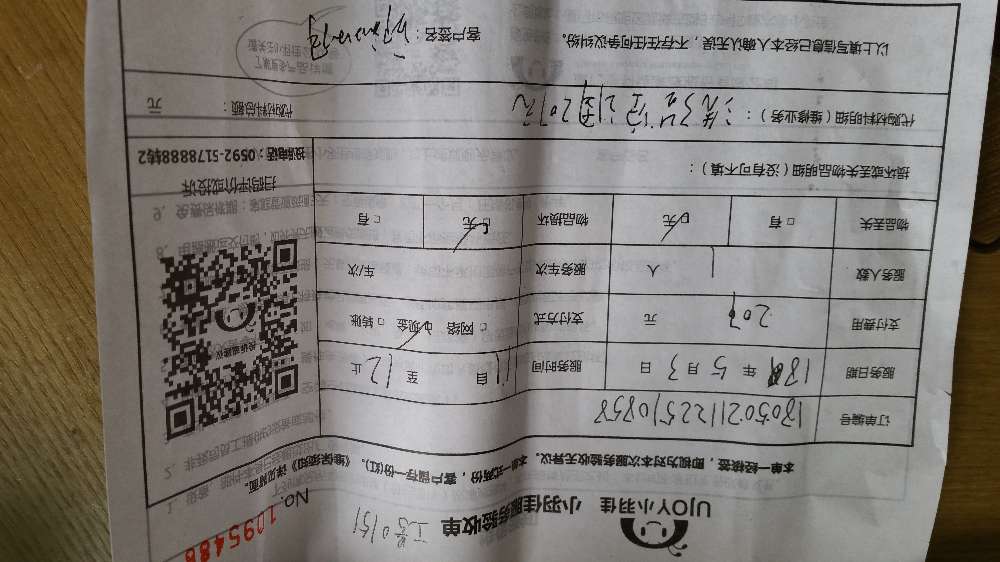 UJOY小羽佳 小羽佳服务验收单 工号0151
No. 1095486
本单一经核签，即视为对本次服务验收无异议。本单一式两份，客户留存一份(红)。《维保须知》详见背面。
订单编号 1805021122510858
服务日期 18年5月3日 服务时间 自11至12止
支付费用 207元 支付方式 □网络 □现金 □转账
服务人数 1人 服务车次 车/次
物品丢失 □有 □无 物品损坏 □无 □有
损坏或丢失物品明细（没有可不填）：
扫码评价或投诉
投诉电话：0592-5178888转2
代购材料明细（维修业务）：
代购材料总额： 元
以上填写信息已经本人确认无误，不存在任何争议纠纷。
客户签名：